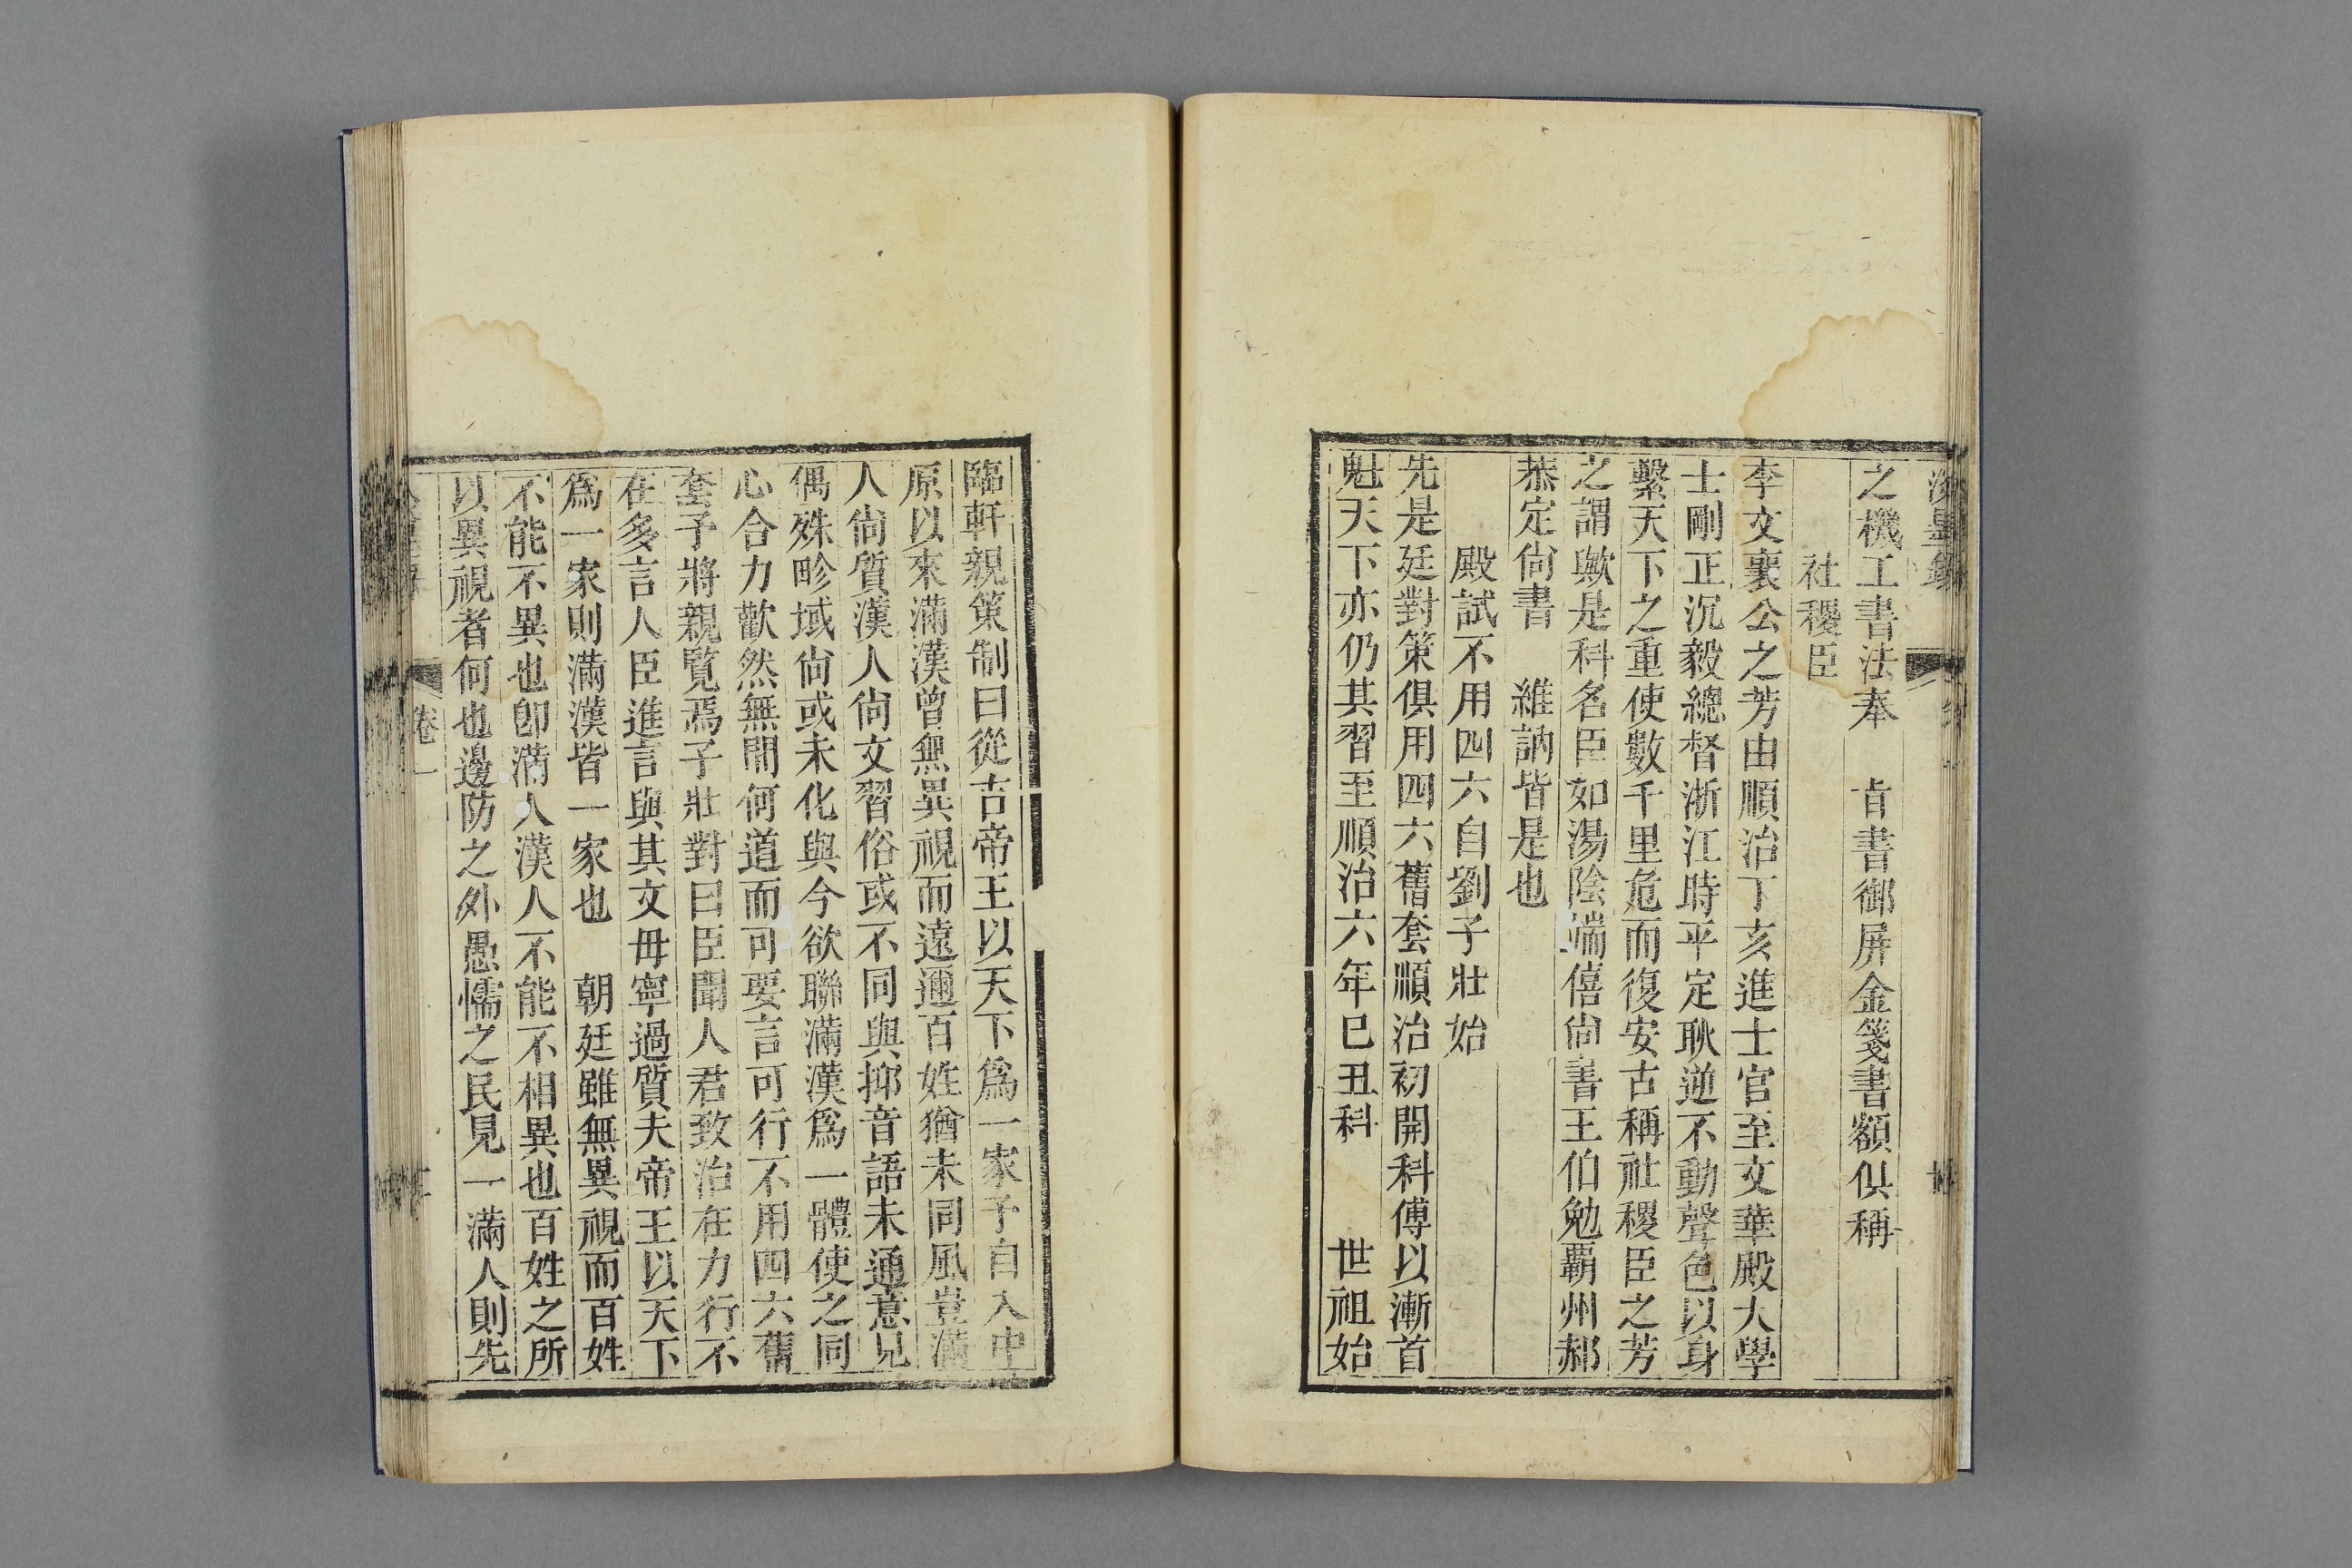 之機工書法奉　旨書御屏金箋書額俱稱
社稷臣
李文襄公之芳由順治丁亥進士官至文華殿大學
士剛正沉毅總督浙江時平定耿逆不動聲色以身
繫天下之重使數千里危而復安古稱社稷臣之芳
之謂歟是科名臣如湯陰端僖尙書王伯勉覇州郝
恭定尙書　維訥皆是也
殿試不用四六自劉子壯始
先是廷對策俱用四六舊套順治初開科傅以漸首
魁天下亦仍其習至順治六年巳丑科　世祖始
臨軒親策制曰從古帝王以天下爲一家予自入中
原以來滿漢曾無異視而遠邇百姓猶未同風豈滿
人尙質漢人尙文習俗或不同與抑音語未通意見
偶殊畛域尙或未化與今欲聯滿漢爲一體使之同
心合力歡然無間何道而可要言可行不用四六舊
套予將親覽焉子壯對曰臣聞人君致治在力行不
在多言人臣進言與其文毋寧過質夫帝王以天下
爲一家則滿漢皆一家也　朝廷雖無異視而百姓
不能不異也卽滿人漢人不能不相異也百姓之所
以異視者何也邊防之外愚懦之民見一滿人則先
卷一